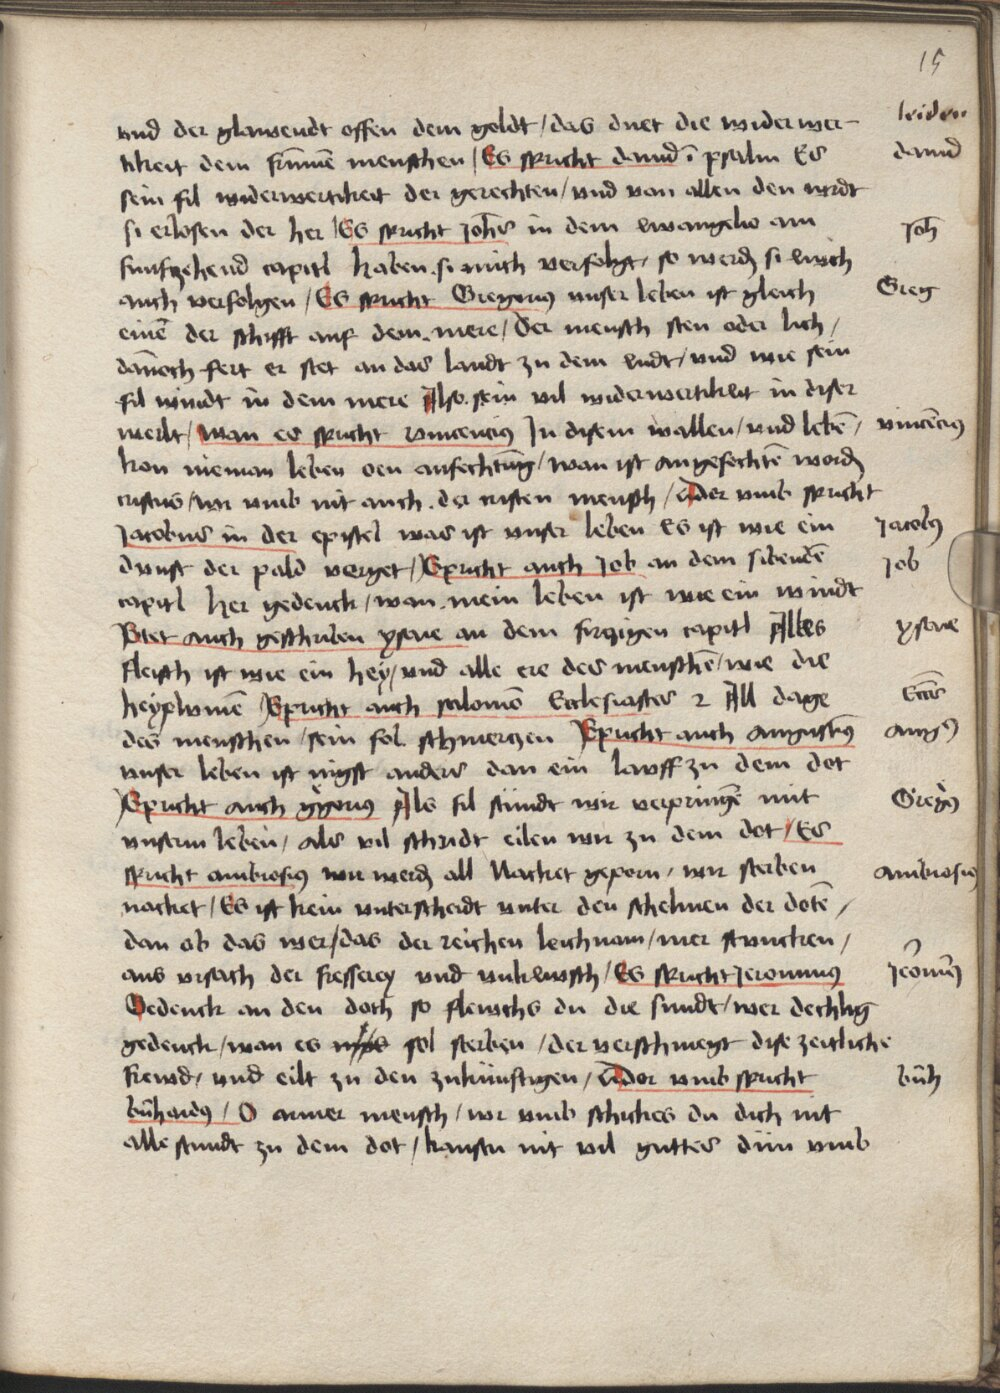 15
leiden
vnd der glawendt offen dem geldt / das duet die widerwer-
tikeit dem frūmē menschen / Es spricht dauid ī psalm Es
dauid
sein fil widerwertikeit der gerechten / vnd von allen den wirdt
si erlosen der her / Es spricht Johēs in dem ewangelio am
Joh̄
funfzehend capitl haben si mich verfolgt / so werdē si ewich
auch verfolgen / Es spricht Gregorius vnser leben ist gleich
Greg
einē der schifft auf dem mere / Der mensch sten oder lich /
dānoch fert er stet an das landt zu dem endt / vnd wie sein
fil windt in dem mere Also sein vil widerwertikeit in diser
welt / wan es spricht vincencius In disem wallen / vnd lebē /
vincēcius
kon nieman leben oen anfechtūg / wan ist angefechtē wordē
cristus / wr vmb nit auch der cristen mensch / Dor vmb spricht
Jacobus in der epistel was ist vnser leben Es ist wie ein
Jacobus
dunst der pald verget / Spricht auch Job an dem sibendē
Job
capitl her gedenck / wan mein leben ist wie ein windt
Stet auch geschriben ysaie an dem firzigen capitl Alles
ysaie
fleisch ist wie ein hey / vnd alle ere des menschē / wie die
heyplumē Spricht auch salomō Ecclesiastes 2 All dage
Eccēs
des menschen / sein fol schmerzen Spricht auch Augustīus
Augus
vnser leben ist nigst anders dan ein lawff zu dem dot
Spricht auch ggorius Als fil stundt wir verpringē mit
Gregos
vnserm leben / als vil schridt eilen wir zu dem dot / Es
spricht ambrosius wir werdē all Nacket geporn / wir sterben
ambrosius
nacket / Es ist kein vnterscheidt vnter den schelmen der dotē /
dan ob das wer / das der reichen leichnam / mer stuncken /
aus vrsach der fresserey vnd vnkewsch / Es spricht Jeronimus
Jeronimus
Gedenck an den doth so flewchs du die sundt / wer dechlig
gedenck / wan es sol sterben / der verschmegt dise zeitliche
frewd / vnd eilt zu den zukunftigen / Dor vmb spricht
bn̄h
bn̄hardus / O armer mensch / wr vmb schickes du dich nit
alle stundt zu dem dot / kanstu nit vil guttes dun vmb